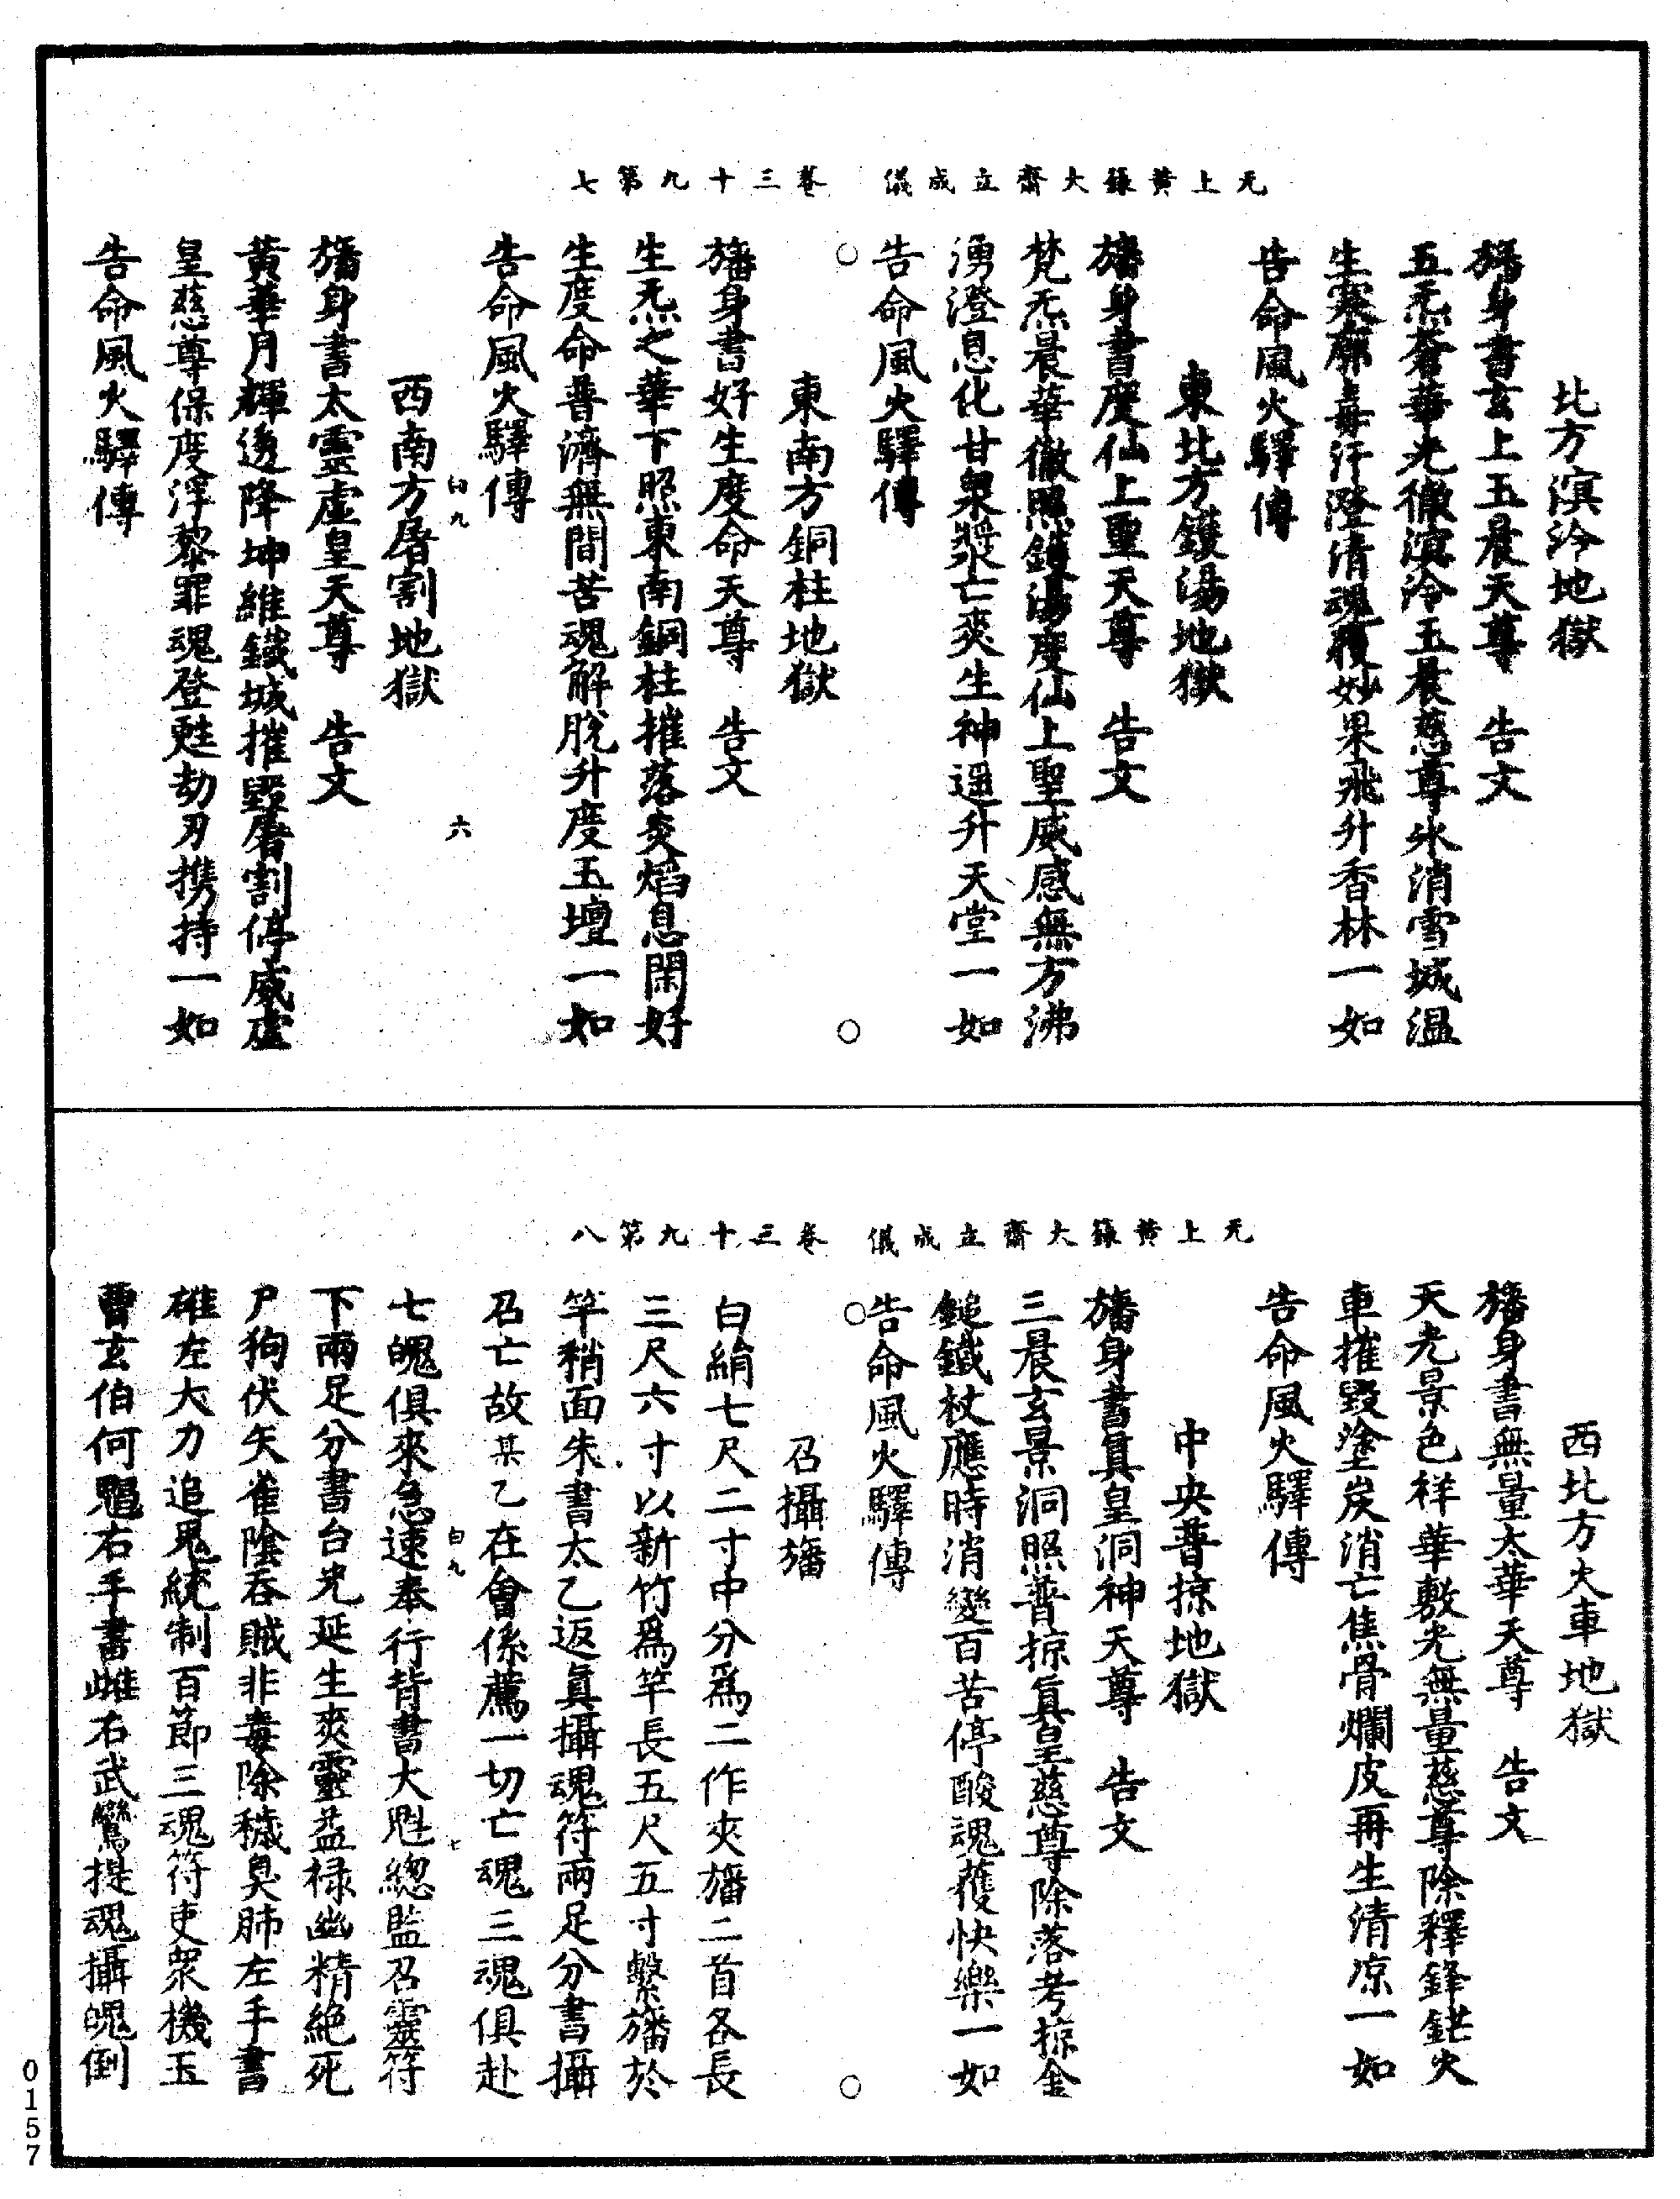 无上黃籙大齋立成儀　卷三十九第七
北方溟泠地獄
旛身書玄上玉晨天尊　告文
五炁蒼華光徹溟泠玉晨慈尊氷消雪城溫
生寒廓毒汗澄清魂獲妙果飛升香林一如
告命風火驛傳
東北方鑊湯地獄
旛身書度仙上聖天尊　告文
梵炁晨華徹照鑊湯度仙上聖威感無方沸
湧澄息化甘泉漿亡爽生神遥升天堂一如
告命風火驛傳
東南方銅柱地獄
旛身書好生度命天尊　告文
生炁之華下照東南銅柱摧落炎熖息閑好
生度命普濟無間苦魂解脫升度玉壇一如
告命風火驛傳
西南方屠割地獄
旛身書太靈虛皇天尊　告文
黃華月輝遂降坤維鐵城摧毀屠割停威虛
皇慈尊保度浮黎罪魂登甦劫刃携持一如
告命風火驛傳
白九　六
无上黃籙大齋立成儀　卷三十九第八
西北方火車地獄
旛身書無量太華天尊　告文
天光景色祥華敷光無量慈尊除釋鋒鋩火
車摧毀塗炭消亡焦骨爛皮再生清凉一如
告命風火驛傳
中央普掠地獄
旛身書眞皇洞神天尊　告文
三晨玄景洞照普掠眞皇慈尊除落考掠金
鎚鐵杖應時消變百苦停酸魂獲快樂一如
告命風火驛傳
召攝旛
白絹七尺二寸中分爲二作夾旛二首各長
三尺六寸以新竹爲竿長五尺五寸繫旛於
竿稍面朱書太乙返眞攝魂符兩足分書攝
召亡故某乙在會係薦一切亡魂三魂俱赴
七魄俱來急速奉行背書大魁總監召靈符
下兩足分書台光延生爽靈益禄幽精絶死
尸狗伏矢雀陰吞賊非毒除穢臭肺左手書
雄左大力追鬼統制百節三魂符吏衆機玉
曹玄伯何鬾右手書雌右武鸞提魂攝魄倒
白九　七
0157